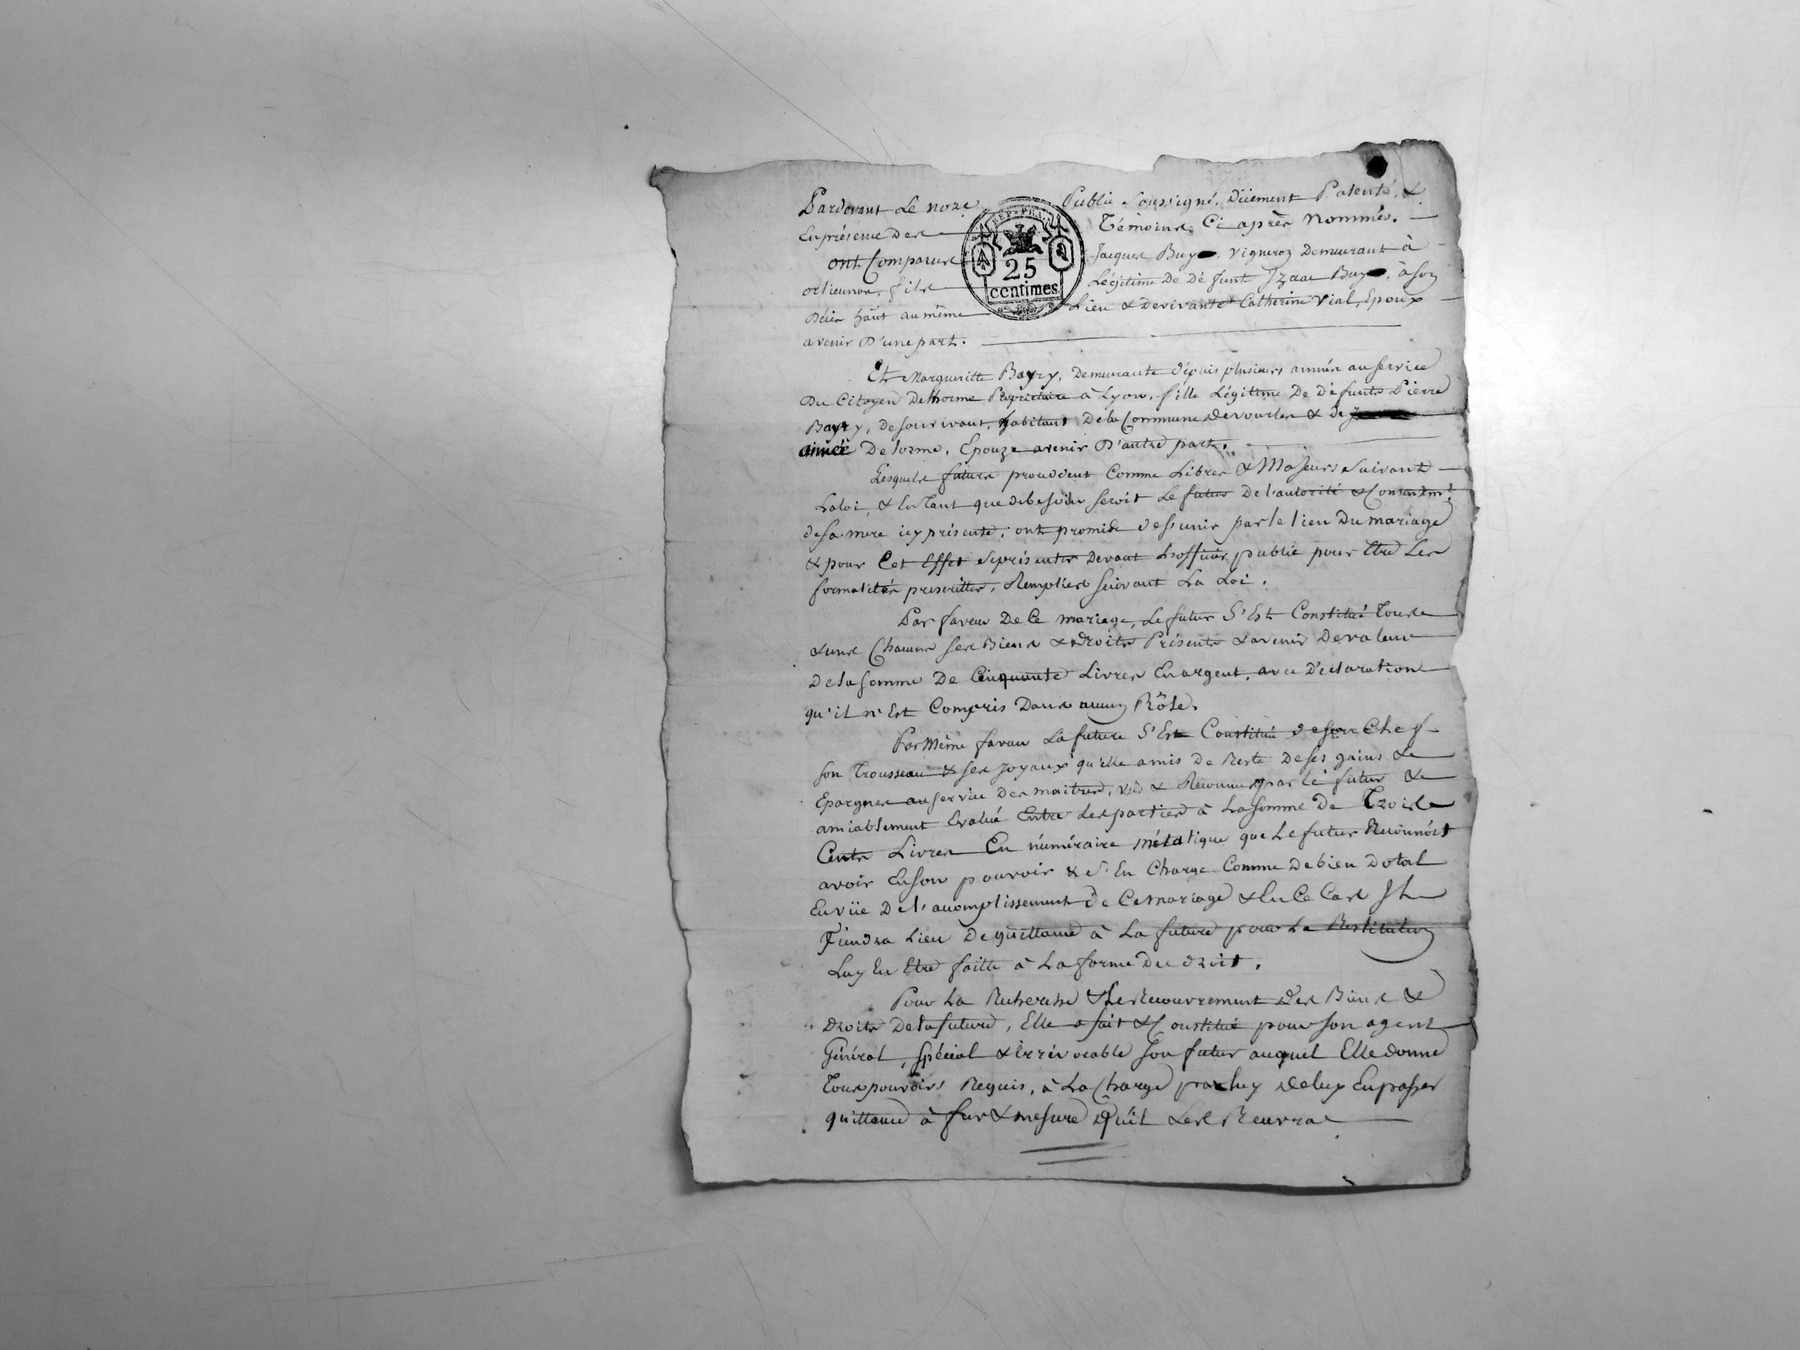 Pardevant Le no.re Public Soussigné, Düement Patenté, &
En présence des Témoins Ci après nommés.
REP. FRA.
25
centimes
ont Comparus Jacques Buy vigneron Demeurant à
orlienas, fils Légitime De Défunt Izaac Buy, à son
Déces haût au même Lieu & De vivante Catherine Vial, Epoux
avenir D'une part.
Et Margueritte Bayzy, Demeurante dépuis plusieurs année au service
Du Citoyen Delhorme Propriétaire à Lyon, fille Légitime De Défunts Pierre
Bayzy, De son vivant, habitant De la Commune de vourles & de
aimée Delorme, Epouze avenir D'autre part.
Lesquels futurs procédent Comme Libres & Majeurs Suivant
La loi, & En Tant que de besoin seroit Le futur De l'autorité & Consentem.t
de sa mere icy présente, ont promis de s'unir par le lien Du mariage
& pour Cet Effet se présenter Devant L'officier public pour Etre Les
formalités prescrittes, Remplies suivant La Loi.
Par faveur De Ce mariage, Le futur S'Est Constitué Tous &
& uns Chacuns ses Biens & droits Présents & avenir De valeur
De la somme De Cinquante Livres En argent, avec Déclaration
qu'il n'Est Compris Dans aucun Rôle.
Par Même faveur La future S'Est Constitué de son Chef
son Trousseau & ses Joyaux qu'elle a mis de Reste De ses gains &
Epargnes au service Des maitres, vûs & Reconnus par le futur &
amiablement Evalué Entre Les parties à La somme De Trois
Cents Livres En numéraire métalique que Le futur Reconnoit
avoir En son pouvoir & s'En Charge Comme De bien Dotal
En vüe De l'acomplissement De Ce mariage & En Ce Cas Il
Tiendra Lieu De quittance à La future pour La Restitution
Luy En Etre faitte à La forme Du droit.
Pour La Recherche & Le Recouvrement Des Biens &
Droits De la future, Elle a fait & Constitué pour son agent
Général, spécial & irrévocable son futur auquel Elle donne
Tous pouvoirs Requis, à La Charge par luy de luy En passer
quittance à fur & mesure qu'il Les Recevra